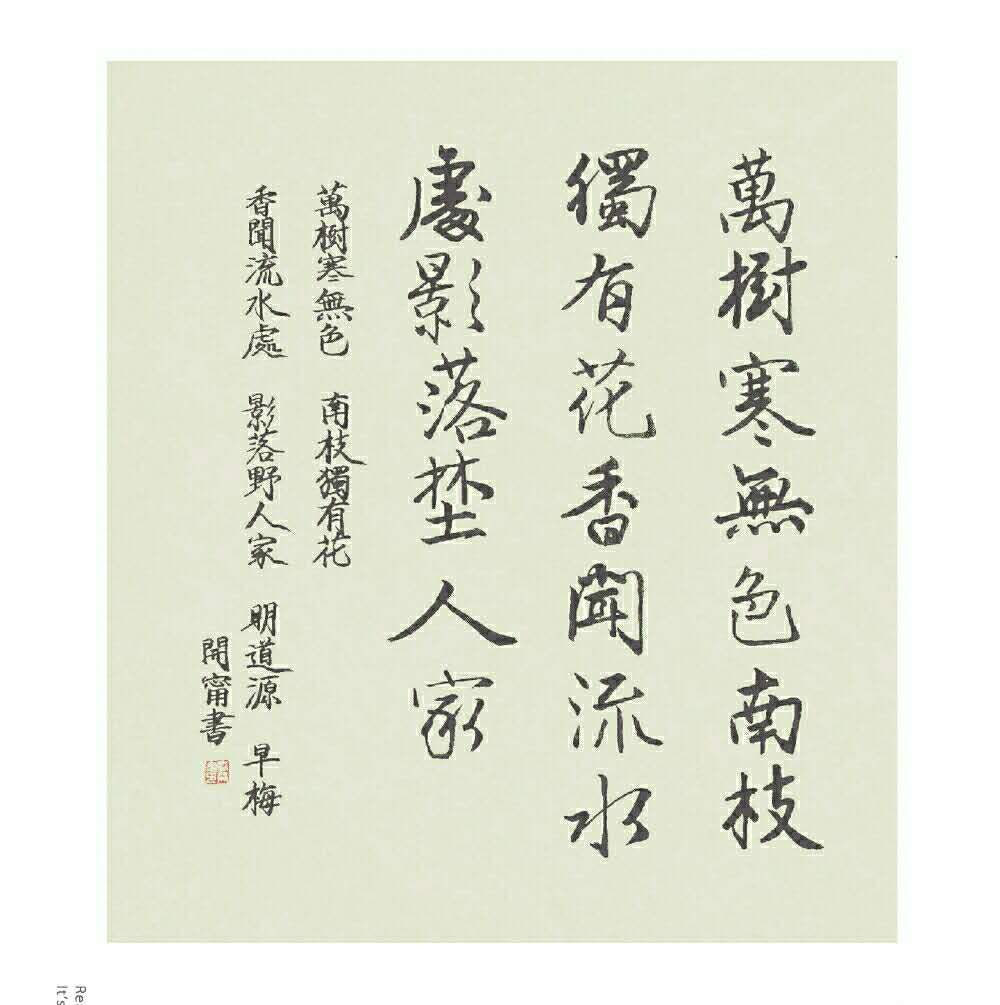 萬樹寒無色南枝
獨有花香聞流水
處影落埜人家
萬樹寒無色 南枝獨有花
香聞流水處 影落野人家 明道源 早梅
開甯書
Re
It's